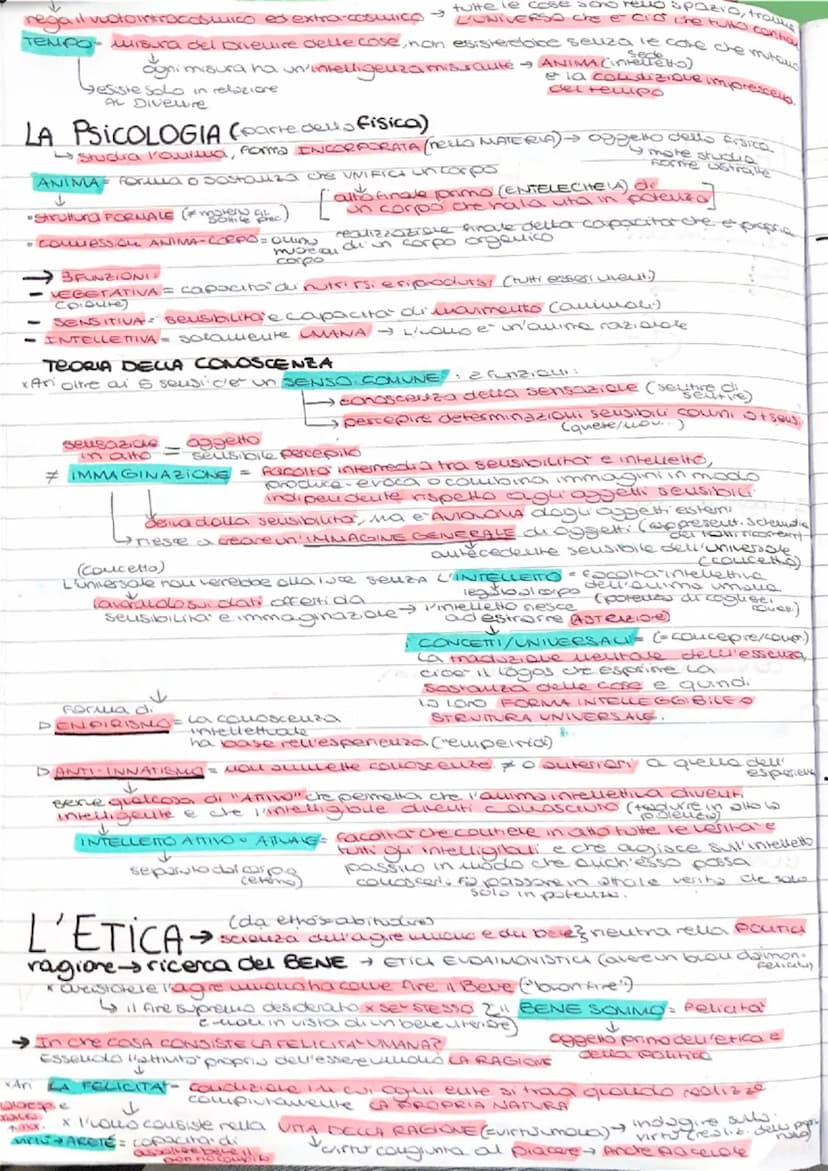 tutte le cose sono nello spazio, tranne
nega il vuoto intracosmico ed extra-cosmico → L'UNIVERSO che è ciò che tutto contiene
TEMPO = misura del Divenire delle cose, non esisterebbe senza le cose che mutano
ogni misura ha un'intelligenza misurante → ANIMA (intelletto) sede
esiste solo in relazione AL DIVENIRE
è la condizione imprescind. del tempo
LA PSICOLOGIA (parte della fisica)
↳ studia l'anima, forma INCORPORATA (nella MATERIA) → oggetto della fisica
ANIMA = forma o sostanza che UNIFICA un corpo
• STRUTTURA FORMALE
[atto finale primo (ENTELECHEIA) di un corpo che ha la vita in potenza]
realizzazione finale della capacità che è propria di un corpo organico
• CONNESSIONE ANIMA-CORPO = anima muore col corpo
→ 3 FUNZIONI:
- VEGETATIVA = capacità di nutrirsi e riprodursi (tutti esseri viventi)
(piante)
- SENSITIVA = sensibilità e capacità di movimento (animali)
- INTELLETTIVA = solamente UMANA → L'uomo è un'anima razionale
TEORIA DELLA CONOSCENZA
× Ari oltre ai 5 sensi c'è un SENSO COMUNE : 2 funzioni:
→ conoscenza della sensazione (sentire di sentire)
→ percepire determinazioni sensibili comuni a + sensi
(quete/mov..)
sensazione in atto = oggetto sensibile percepito
≠ IMMAGINAZIONE = facoltà intermedia tra sensibilità e intelletto,
produce-evoca o combina immagini in modo
indipendente rispetto agli oggetti sensibili
deriva dalla sensibilità, ma è AUTONOMA dagli oggetti esterni
riesce a creare un'IMMAGINE GENERALE di oggetti
antecedente sensibile dell'universale
(concetto)
(concetto)
L'universale non verrebbe alla luce senza L'INTELLETTO = facoltà intellettiva dell'anima umana
legato al corpo
lavorando sui dati offerti da
sensibilità e immaginazione → l'intelletto riesce ad estrarre (ASTRAZIONE)
i CONCETTI/UNIVERSALI
La traduzione mentale dell'essenza,
cioè il lógas che esprime la
sostanza delle cose e quindi
la loro FORMA INTELLEGGIBILE o
STRUTTURA UNIVERSALE.
Forma di
▷ EMPIRISMO = La conoscenza
intellettuale
ha base nell'esperienza
▷ ANTI-INNATISMO = non ammette conoscenze ≠ o anteriori a quella dell'
esperienza
serve qualcosa di "ATTIVO" che permetta che l'anima intellettiva diventi
intelligente e che l'intelligibile diventi conosciuto (tradurre in atto la
potenza)
INTELLETTO ATTIVO o ATTUALE = facoltà che contiene in atto tutte le verità e
tutti gli intelligibili e che agisce sull'intelletto
passivo in modo che anch'esso possa
separato dal corpo
(eterno)
conoscerli. Fa passare in atto le verità che sono
solo in potenza.
L'ETICA (da ethos=abitudine)
→ scienza dell'agire umano e del bene} rientra nella POLITICA
ragione → ricerca del BENE → ETICA EUDAIMONISTICA (avere un buon daimon-
felicità)
× aristotele l'agire umano ha come fine il Bene ("buon fine")
↳ il fine supremo desiderato × SE STESSO
e non in vista di un bene ulteriore)
il BENE SOMMO = Felicità
→ In che COSA CONSISTE LA FELICITÀ UMANA?
oggetto primo dell'etica e
della politica
Essendo l'attività propria dell'essere umano LA RAGIONE
× Ari LA FELICITÀ = condizione in cui ogni ente si trova quando realizza
compiutamente LA PROPRIA NATURA
× l'uomo consiste nella VITA DELLA RAGIONE → indagine sulla
virtù
VIRTÙ → ARETÉ = capacità di
virtù congiunta al piacere → ANCHE PIACEVOLE